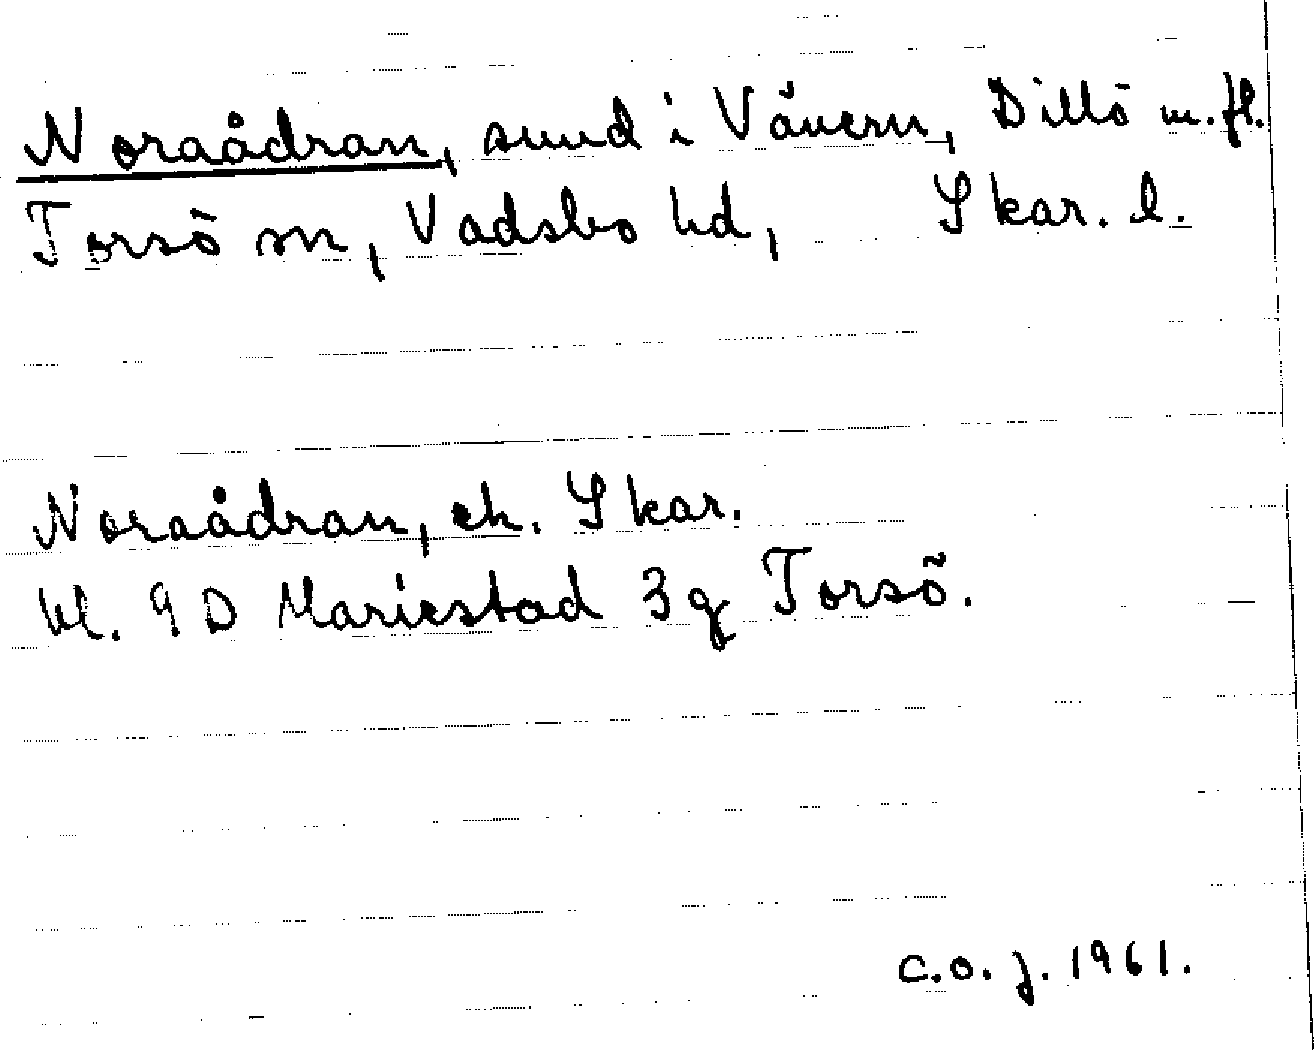 Noraådran, sund i Vänern, Dillö m.fl.
Torsö sn, Vadsbo hd, Skar. l.
Noraådran, ek. Skar.
bl. 9D Mariestad 3g Torsö.
C.O.J. 1961.